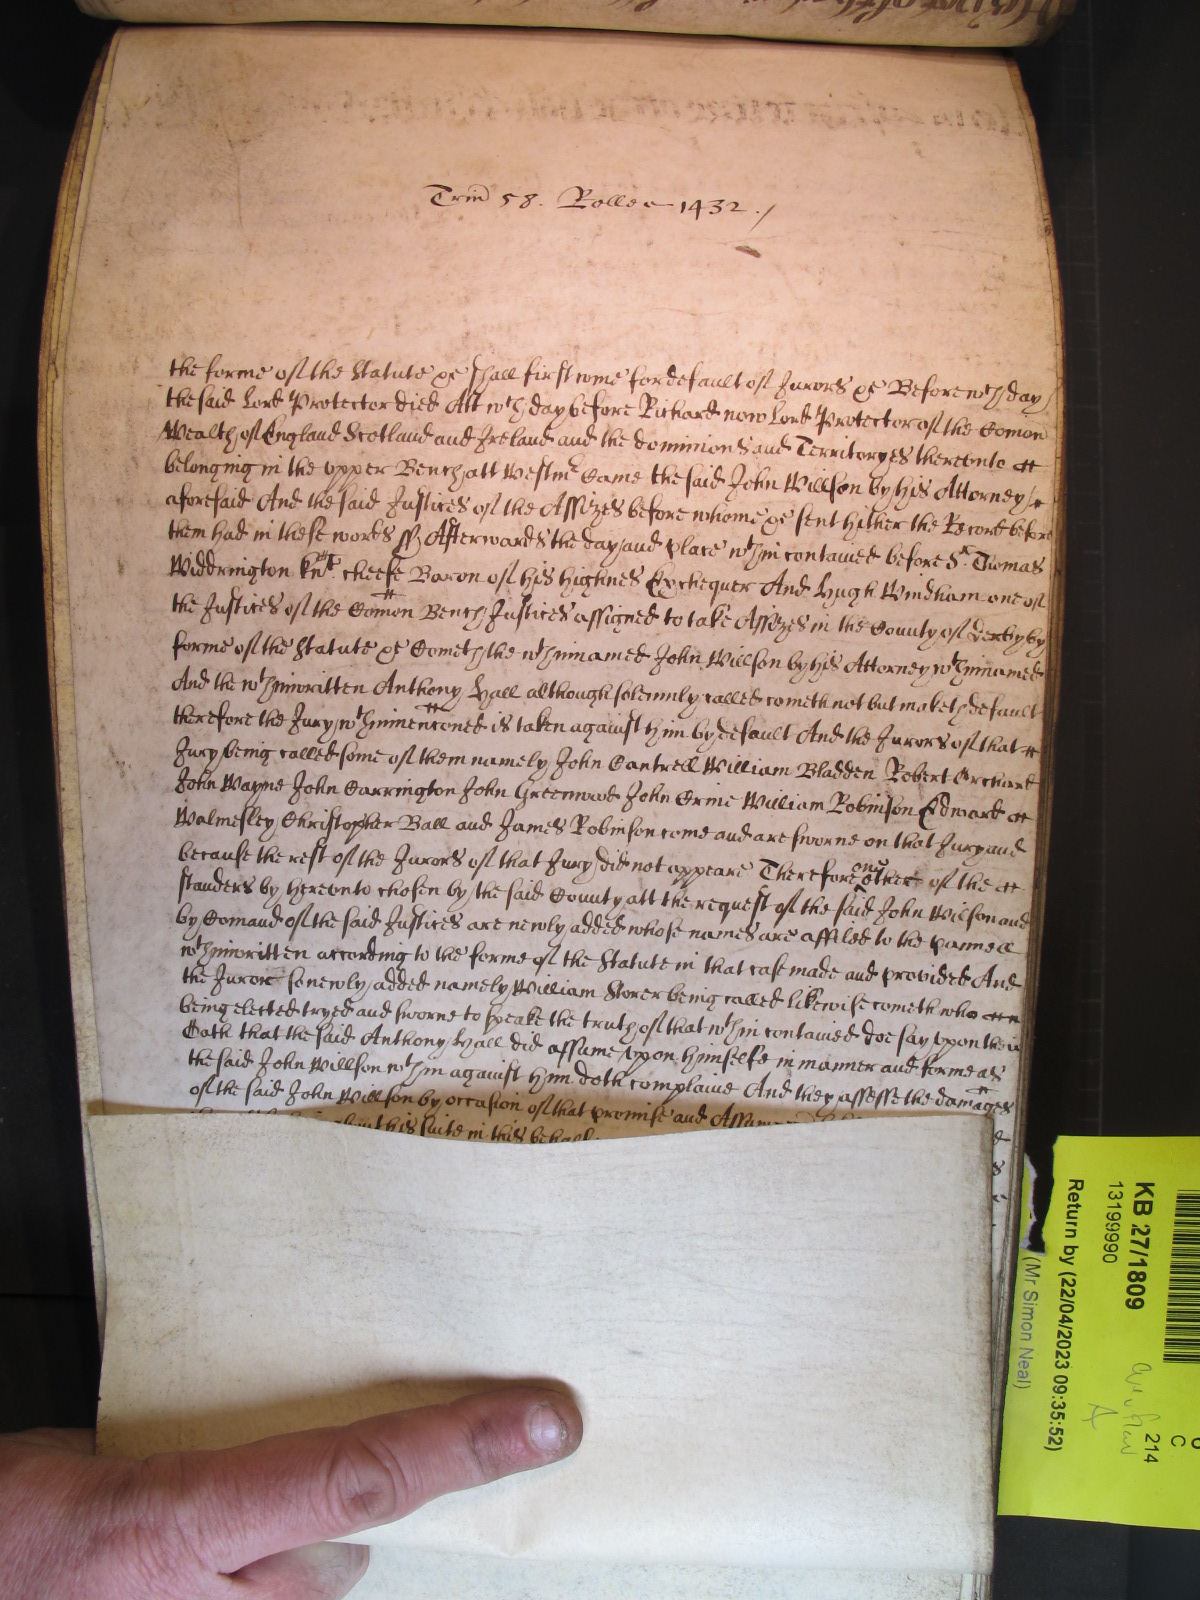 Trin 58. Rolle 1432./
the forme of the Statute &c shall first come for default of Jurors &c Before wch day
the said Lord Protector died Att wch day before Richard now Lord Protector of the Comon
Wealth of England Scotland and Ireland and the dominions and Territoryes thereunto
belonging in the upper Bench att Westmr Came the said John Willson by his Attorney
aforesaid And the said Justices of the Assizes before whome &c sent hither the Record before
them had in these words ss Afterwards the day and place wthin contained before Sr Thomas
Widdrington Knt cheefe Baron of his highnes Exchequer And Hugh Windham one of
the Justices of the Comon Bench Justices assigned to take Assizes in the County of Derby by
forme of the Statute &c Cometh the wthinnamed John Willson by his Attorney wthinnamed
And the wthinwritten Anthony Hall although solemnly called cometh not but maketh default
therefore the Jury wthinmenconed is taken against him by default And the Jurors of that
Jury being called some of them namely John Cantrell William Bladden Robert Orchard
John Wayne John Carrington John Greenwood John Orme William Robinson Edward
Walmesley Christopher Ball and James Robinson come and are sworne on that Jury and
because the rest of the Jurors of that Jury did not appeare Therefore one other of the
standers by hereunto chosen by the said County att the request of the said John Willson and
by Comand of the said Justices are newly added whose names are affiled to the pannell
wthinwritten according to the forme of the Statute in that case made and provided And
the Juror so newly added namely William Storer being called likewise cometh who
being elected tryed and sworne to speake the truth of that wthin contained doe say upon their
Oath that the said Anthony Hall did assume upon himselfe in manner and forme as
the said John Willson wthin against him doth complaine And they assesse the damages
of the said John Willson by occasion of that promise and
about his suite in this behalfe
KB 27/1809
13199990
Return by (22/04/2023 09:35:52)
(Mr Simon Neal)
214
C
A